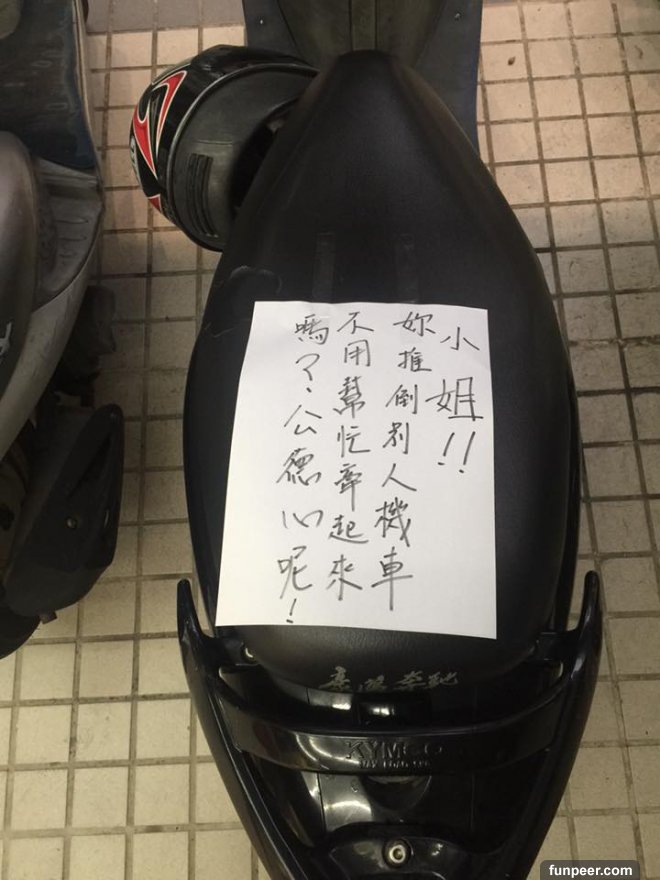 小姐!!
妳推倒別人機車
不用幫忙牽起來
嗎？公德心呢!
KYMCO
funpeer.com